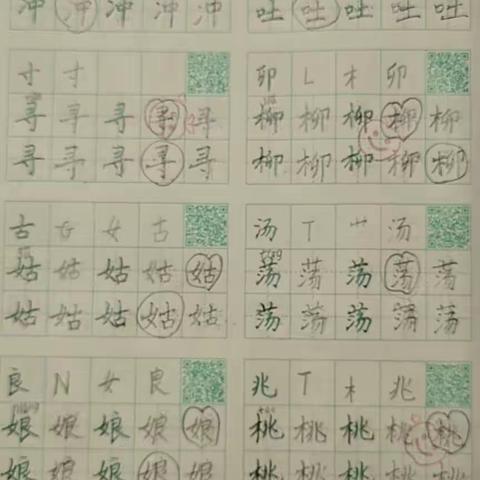 冲 冲 冲 冲 冲
吐 吐 吐 吐 吐
寸 寸
寻 寻 寻 寻 寻
寻 寻 寻 寻 寻
卯 L 木 卯
柳 柳 柳 柳 柳
柳 柳 柳 柳 柳
古 G 女 古
姑 姑 姑 姑 姑
姑 姑 姑 姑 姑
汤 T 艹 汤
荡 荡 荡 荡 荡
荡 荡 荡 荡 荡
良 N 女 良
娘 娘 娘 娘 娘
娘 娘 娘 娘 娘
兆 T 木 兆
桃 桃 桃 桃 桃
桃 桃 桃 桃 桃